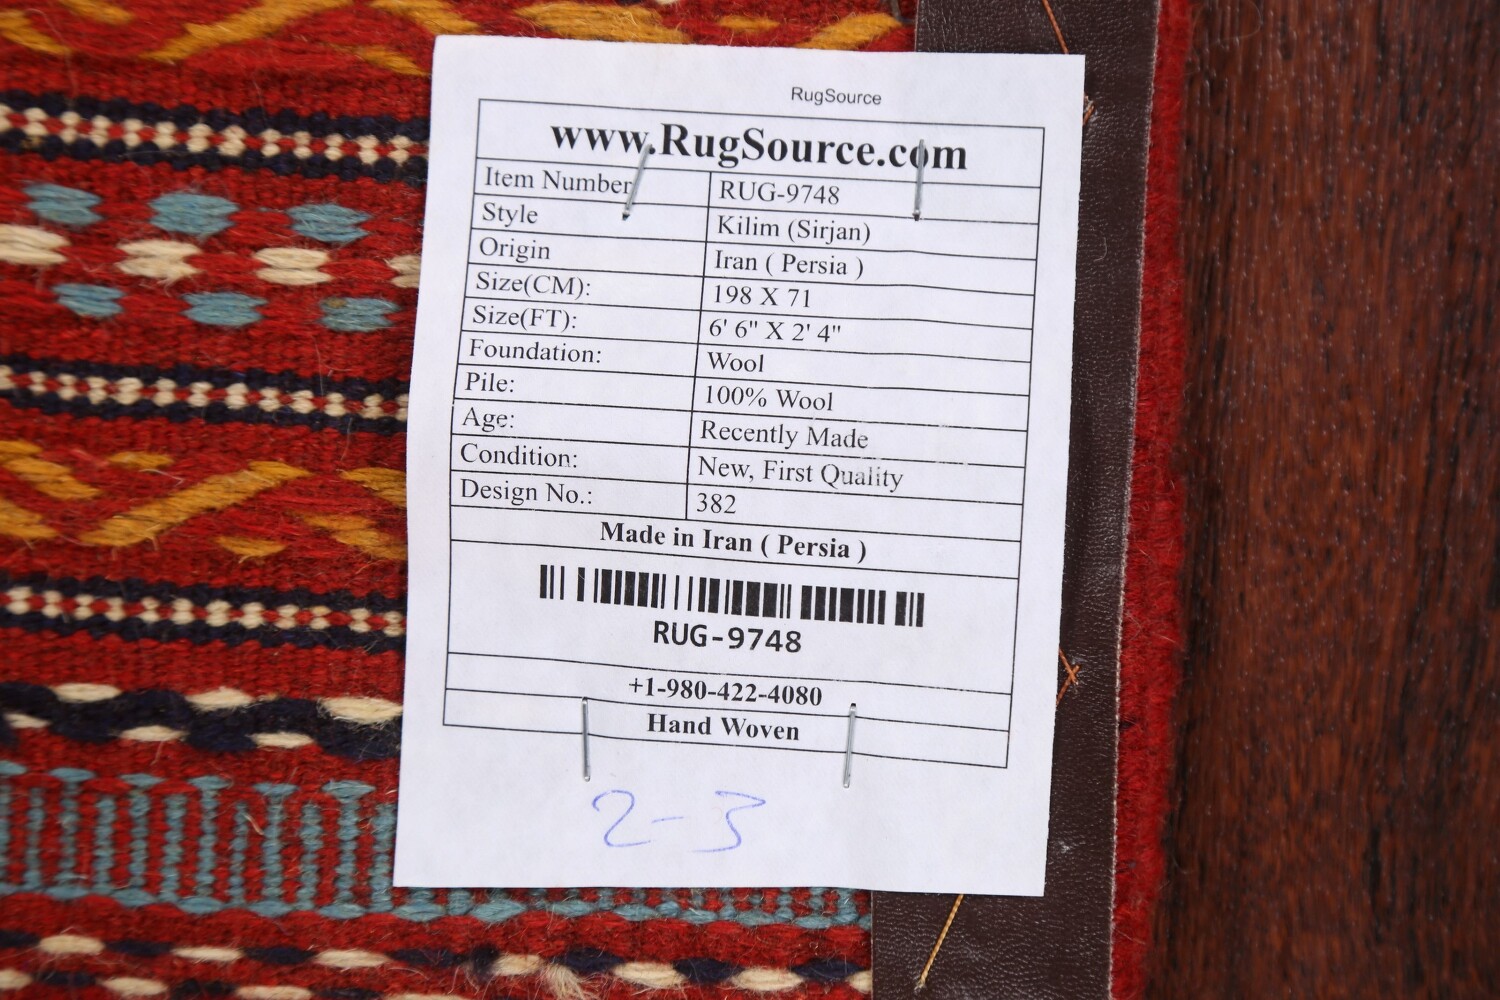 RugSource
www.RugSource.com
Item Number RUG-9748
Style Kilim (Sirjan)
Origin Iran ( Persia )
Size(CM): 198 X 71
Size(FT): 6' 6" X 2' 4"
Foundation: Wool
Pile: 100% Wool
Age: Recently Made
Condition: New, First Quality
Design No.: 382
Made in Iran ( Persia )
RUG-9748
+1-980-422-4080
Hand Woven
2-3